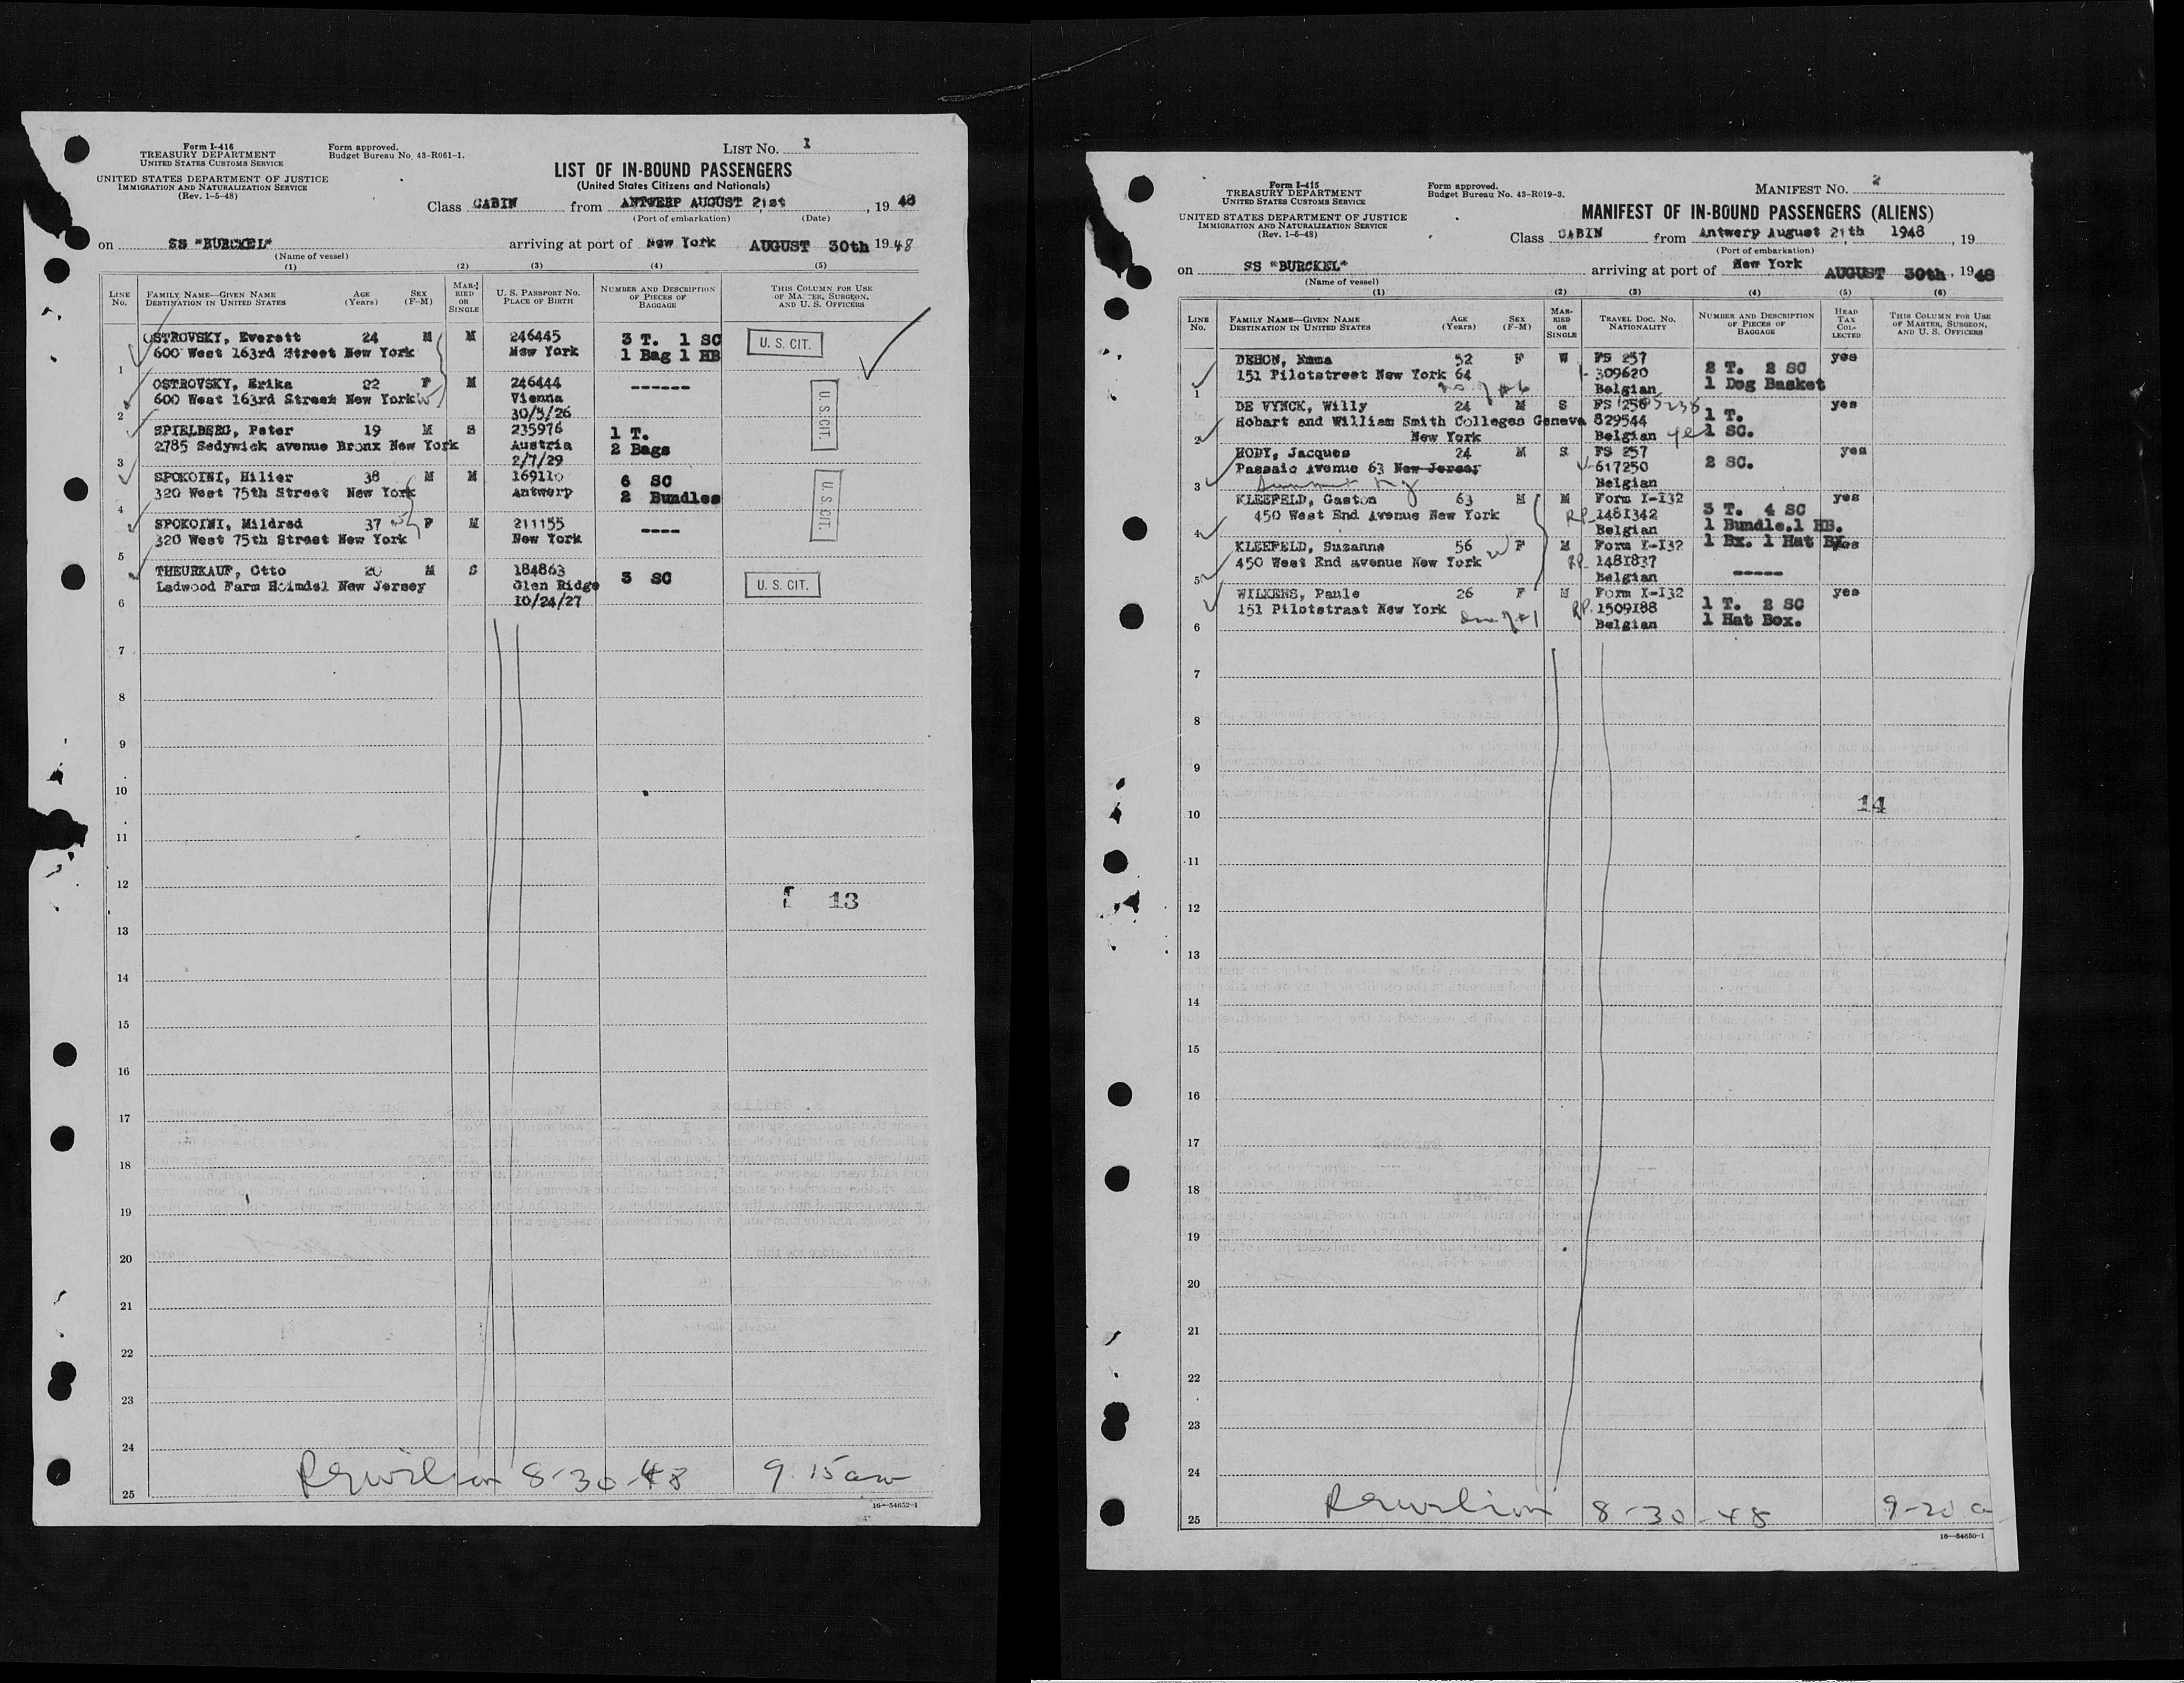 Form I-416
TREASURY DEPARTMENT
UNITED STATES CUSTOMS SERVICE
UNITED STATES DEPARTMENT OF JUSTICE
IMMIGRATION AND NATURALIZATION SERVICE
(Rev. 1-5-48)
Form approved.
Budget Bureau No. 43-R061-1.
LIST NO. 1
LIST OF IN-BOUND PASSENGERS
(United States Citizens and Nationals)
Class CABIN from ANTWERP AUGUST 21st, 19 48
(Port of embarkation) (Date)
on SS "BURCKEL" arriving at port of New York AUGUST 30th 1948
(Name of vessel)
(1) (2) (3) (4) (5)
LINE NO. FAMILY NAME—GIVEN NAME DESTINATION IN UNITED STATES AGE (Years) SEX (F-M) MARRIED OR SINGLE U. S. PASSPORT NO. PLACE OF BIRTH NUMBER AND DESCRIPTION OF PIECES OF BAGGAGE THIS COLUMN FOR USE OF MASTER, SURGEON, AND U. S. OFFICERS
OSTROVSKY, Everett 24 M M 246445 3 T. 1 SC U. S. CIT.
1 600 West 163rd Street New York New York 1 Bag 1 HB
OSTROVSKY, Erika 22 F M 246444 ------ U. S. CIT.
600 West 163rd Street New York Vienna
2 30/5/26
SPIELBERG, Peter 19 M S 235976 1 T.
2785 Sedywick avenue Bronx New York Austria 2 Bags
3 2/7/29
SPOKOINI, Hilier 38 M M 169110 6 SC U. S. CIT.
4 320 West 75th Street New York Antwerp 2 Bundles
SPOKOINI, Mildred 37 F M 211155 ----
5 320 West 75th Street New York New York
THEURKAUF, Otto 20 M S 184863 3 SC U. S. CIT.
Ladwood Farm Holmdel New Jersey Glen Ridge
6 10/24/27
7
8
9
10
11
12
13
13
14
15
16
17
18
19
20
21
22
23
24
25 8-30-48 9.15am
16—54652-1
Form I-415
TREASURY DEPARTMENT
UNITED STATES CUSTOMS SERVICE
UNITED STATES DEPARTMENT OF JUSTICE
IMMIGRATION AND NATURALIZATION SERVICE
(Rev. 1-5-48)
Form approved.
Budget Bureau No. 43-R019-3.
MANIFEST NO. 2
MANIFEST OF IN-BOUND PASSENGERS (ALIENS)
Class CABIN from Antwerp August 21th 1948, 19
(Port of embarkation)
on SS "BURCKEL" arriving at port of New York AUGUST 30th, 1948
(Name of vessel)
(1) (2) (3) (4) (5) (6)
LINE NO. FAMILY NAME—GIVEN NAME DESTINATION IN UNITED STATES AGE (Years) SEX (F-M) MARRIED OR SINGLE TRAVEL DOC. NO. NATIONALITY NUMBER AND DESCRIPTION OF PIECES OF BAGGAGE HEAD TAX COLLECTED THIS COLUMN FOR USE OF MASTER, SURGEON, AND U. S. OFFICERS
DEHON, Emma 52 F W FS 257 2 T. 2 SC yes
151 Pilotstreet New York 64 309620 1 Dog Basket
1 Belgian
DE VYNCK, Willy 24 M S FS 256 1 T. yes
Hobart and William Smith Colleges Geneva 829544 1 SC.
2 New York Belgian yes
HODY, Jacques 24 M S FS 257 2 SC. yes
Passaic Avenue 63 New Jersey 617250
3 Summit NJ Belgian
KLEEFELD, Gaston 63 M M Form I-I32 3 T. 4 SC yes
450 West End Avenue New York RP. 1481342 1 Bundle.1 HB.
4 Belgian 1 Bx. 1 Hat BX.
KLEEFELD, Suzanne 56 F M Form I-I32 yes
450 West End avenue New York RP. 1481837 -----
5 Belgian
WILKENS, Paule 26 F M Form I-I32 1 T. 2 SC yes
151 Pilotstraat New York RP. 1509188 1 Hat Box.
6 Belgian
7
8
9
14
10
11
12
13
14
15
16
17
18
19
20
21
22
23
24
25 8-30-48 9-20 a
16—54650-1